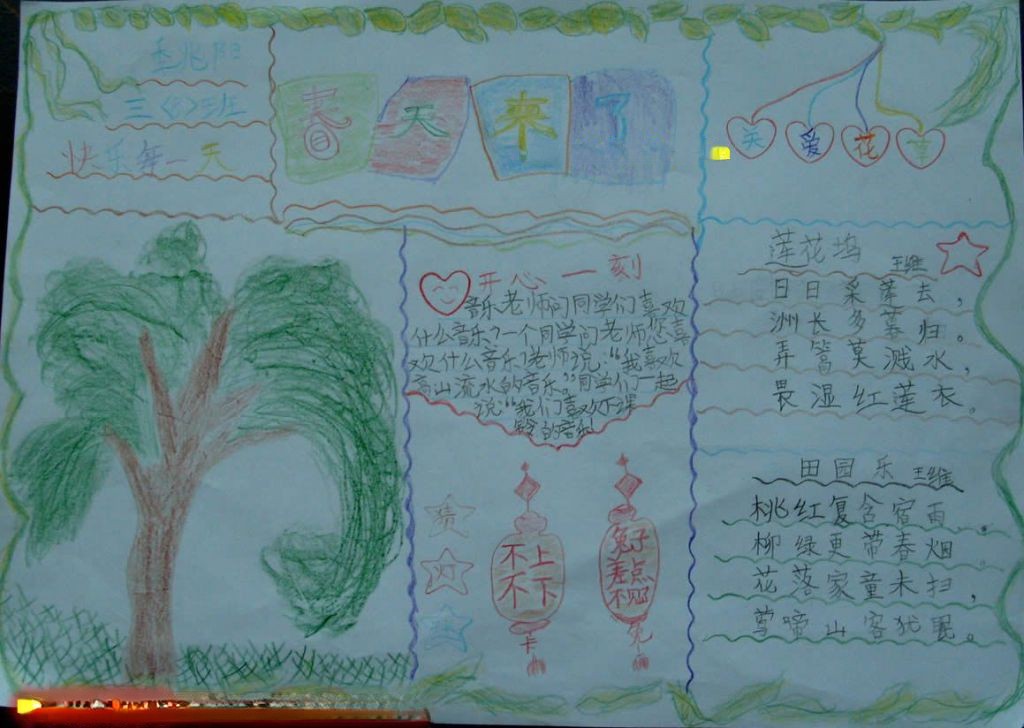 三〈3〉班
快乐每一天
春天来了
关爱花草
开心一刻
音乐老师问同学们喜欢
什么音乐？一个同学问老师您喜
欢什么音乐？老师说：“我喜欢
高山流水的音乐。”同学们一起
说：“我们喜欢下课
铃的音乐！
猜
灯
谜
不上
不下
卡
兔子
差点
不见
免
莲花坞
王维
日日采莲去，
洲长多暮归。
弄篙莫溅水，
畏湿红莲衣。
田园乐 王维
桃红复含宿雨，
柳绿更带春烟
花落家童未扫，
莺啼山客犹眠。